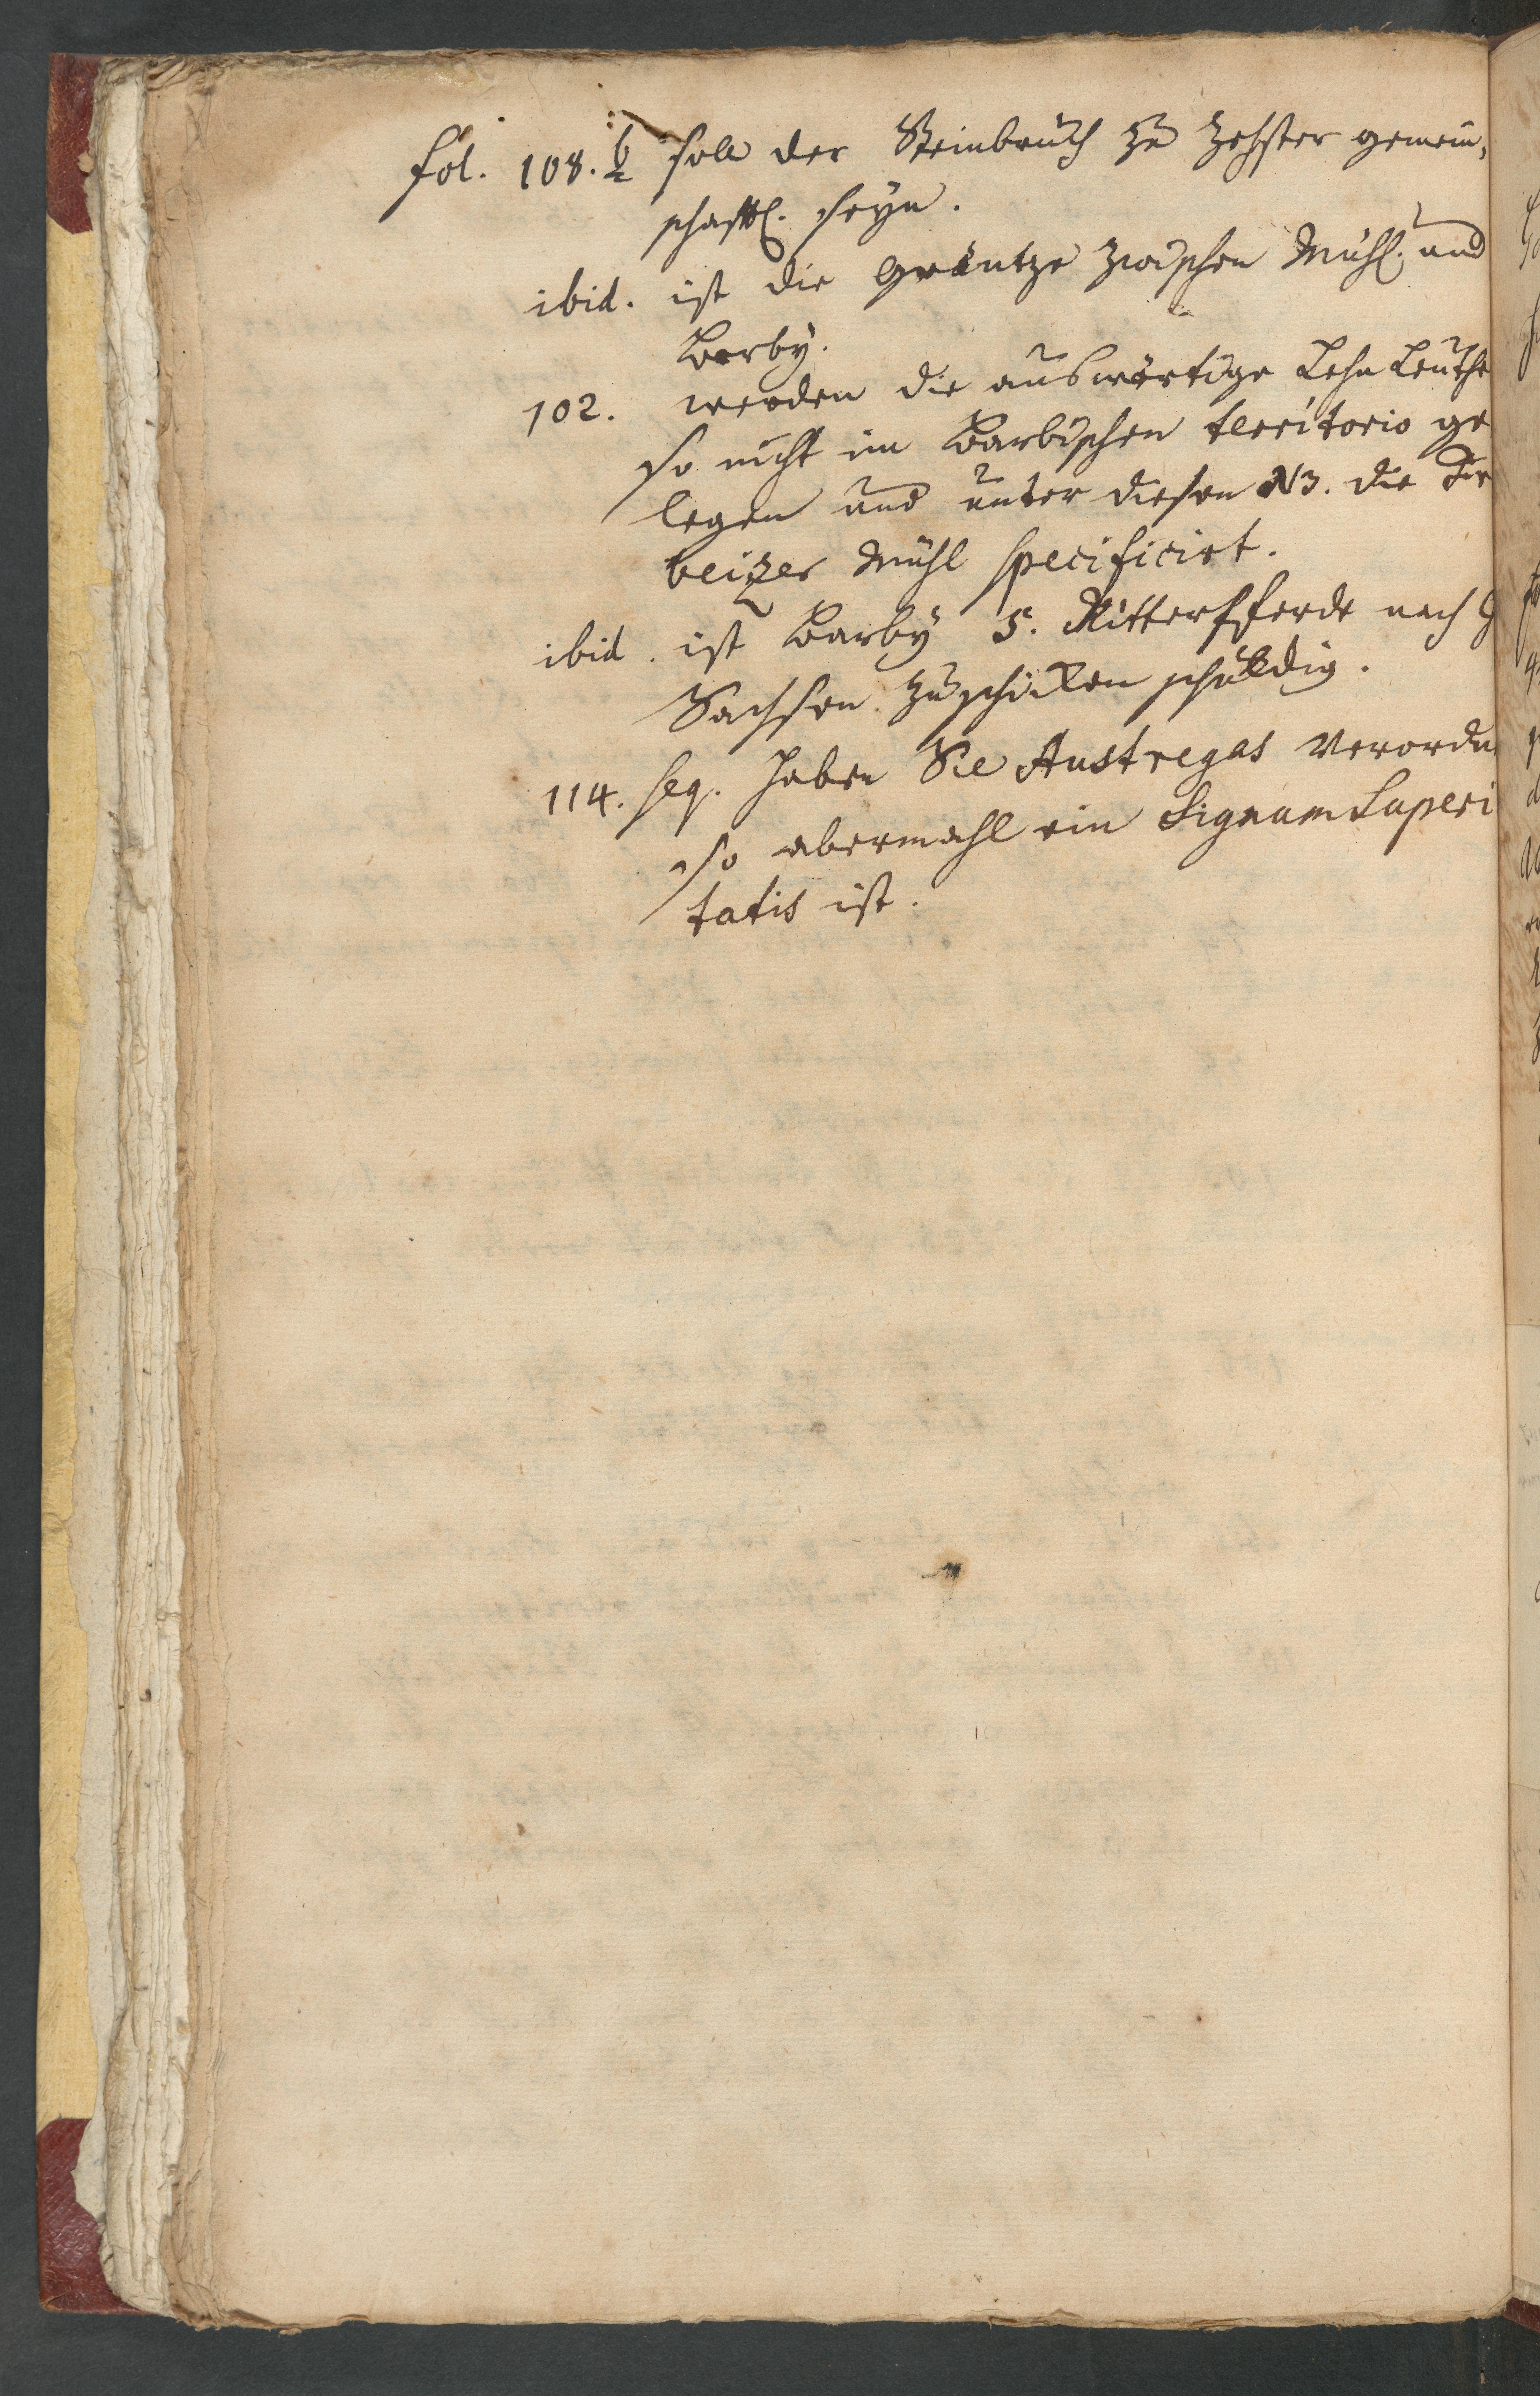 fol. 108. b soll der Steinbruch zu Zehster gemein,
schafftl. seyn.
ibid. ist die Gräntze zwischen Mühl. und
Barby.
102. werden die auswärtige Lehn Leuthe
so nicht im Barbischen territorio ge
legen und unter diesen NB. die
beizer Mühl specificirt.
ibid. ist Barby 5. Ritterpferde nach
Sachsen zuschicken schuldig.
114. seq. haben Sie Austregas verordn
so abermahl ein Signum Superi
tatis ist.